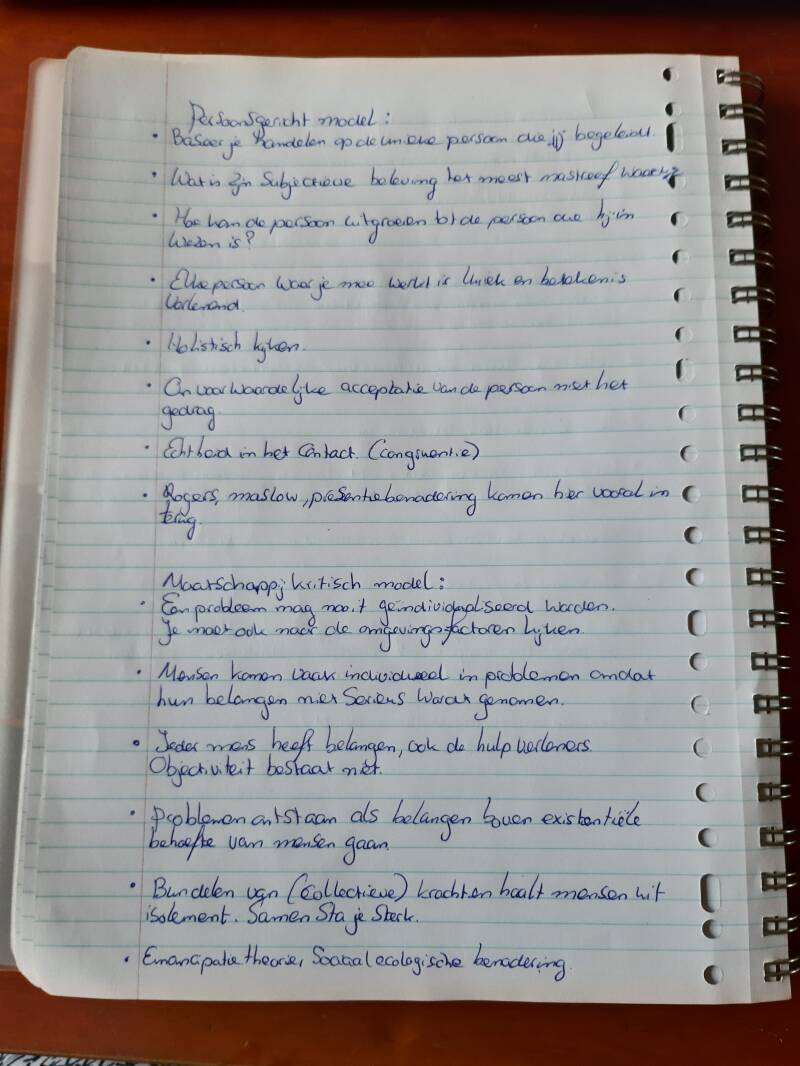 Persoonsgericht model:
• Baseer je handelen op de unieke persoon die jij begeleidt.
• Wat is zijn subjectieve beleving het meest nastreef waardig?
• Hoe kan de persoon uitgroeien tot de persoon die hij in
wezen is?
• Elke persoon waar je mee werkt is uniek en betekenis
verlenend.
• Holistisch kijken.
• Onvoorwaardelijke acceptatie van de persoon niet het
gedrag.
• Echtheid in het contact. (congruentie)
• Rogers, maslow, presentiebenadering komen hier vooral in
terug.
Maatschappij kritisch model:
• Een probleem mag nooit geïndividualiseerd worden.
Je moet ook naar de omgevingsfactoren kijken.
• Mensen komen vaak individueel in problemen omdat
hun belangen niet serieus wordt genomen.
• Ieder mens heeft belangen, ook de hulpverleners.
Objectiviteit bestaat niet.
• Problemen ontstaan als belangen boven existentiële
behoefte van mensen gaan.
• Bundelen van (collectieve) krachten haalt mensen uit
isolement. Samen sta je sterk.
• Emancipatie theorie, Sociaal ecologische benadering.